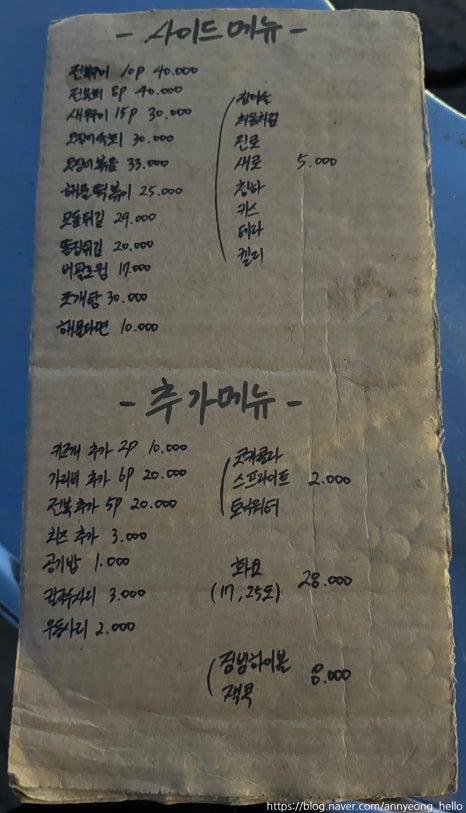 - 사이드메뉴 -
전복구이 10P 40.000
전복회 8P 40.000
새우구이 15P 30.000
오징어숙회 30.000
오징어볶음 33.000
해물떡볶이 25.000
모둠튀김 29.000
똥집튀김 20.000
버팔로윙 17.000
조개탕 30.000
해물라면 10.000
참이슬
처음처럼
진로
새로 5.000
청하
카스
테라
켈리
- 추가메뉴 -
키조개 추가 2P 10.000
가리비 추가 6P 20.000
전복추가 5P 20.000
치즈 추가 3.000
공기밥 1.000
칼국수사리 3.000
우동사리 2.000
코카콜라
스프라이트 2.000
토닉워터
화요 28.000
(17, 25도)
짐빔하이볼
잭콕 8.000
https://blog.naver.com/annyeong_hello